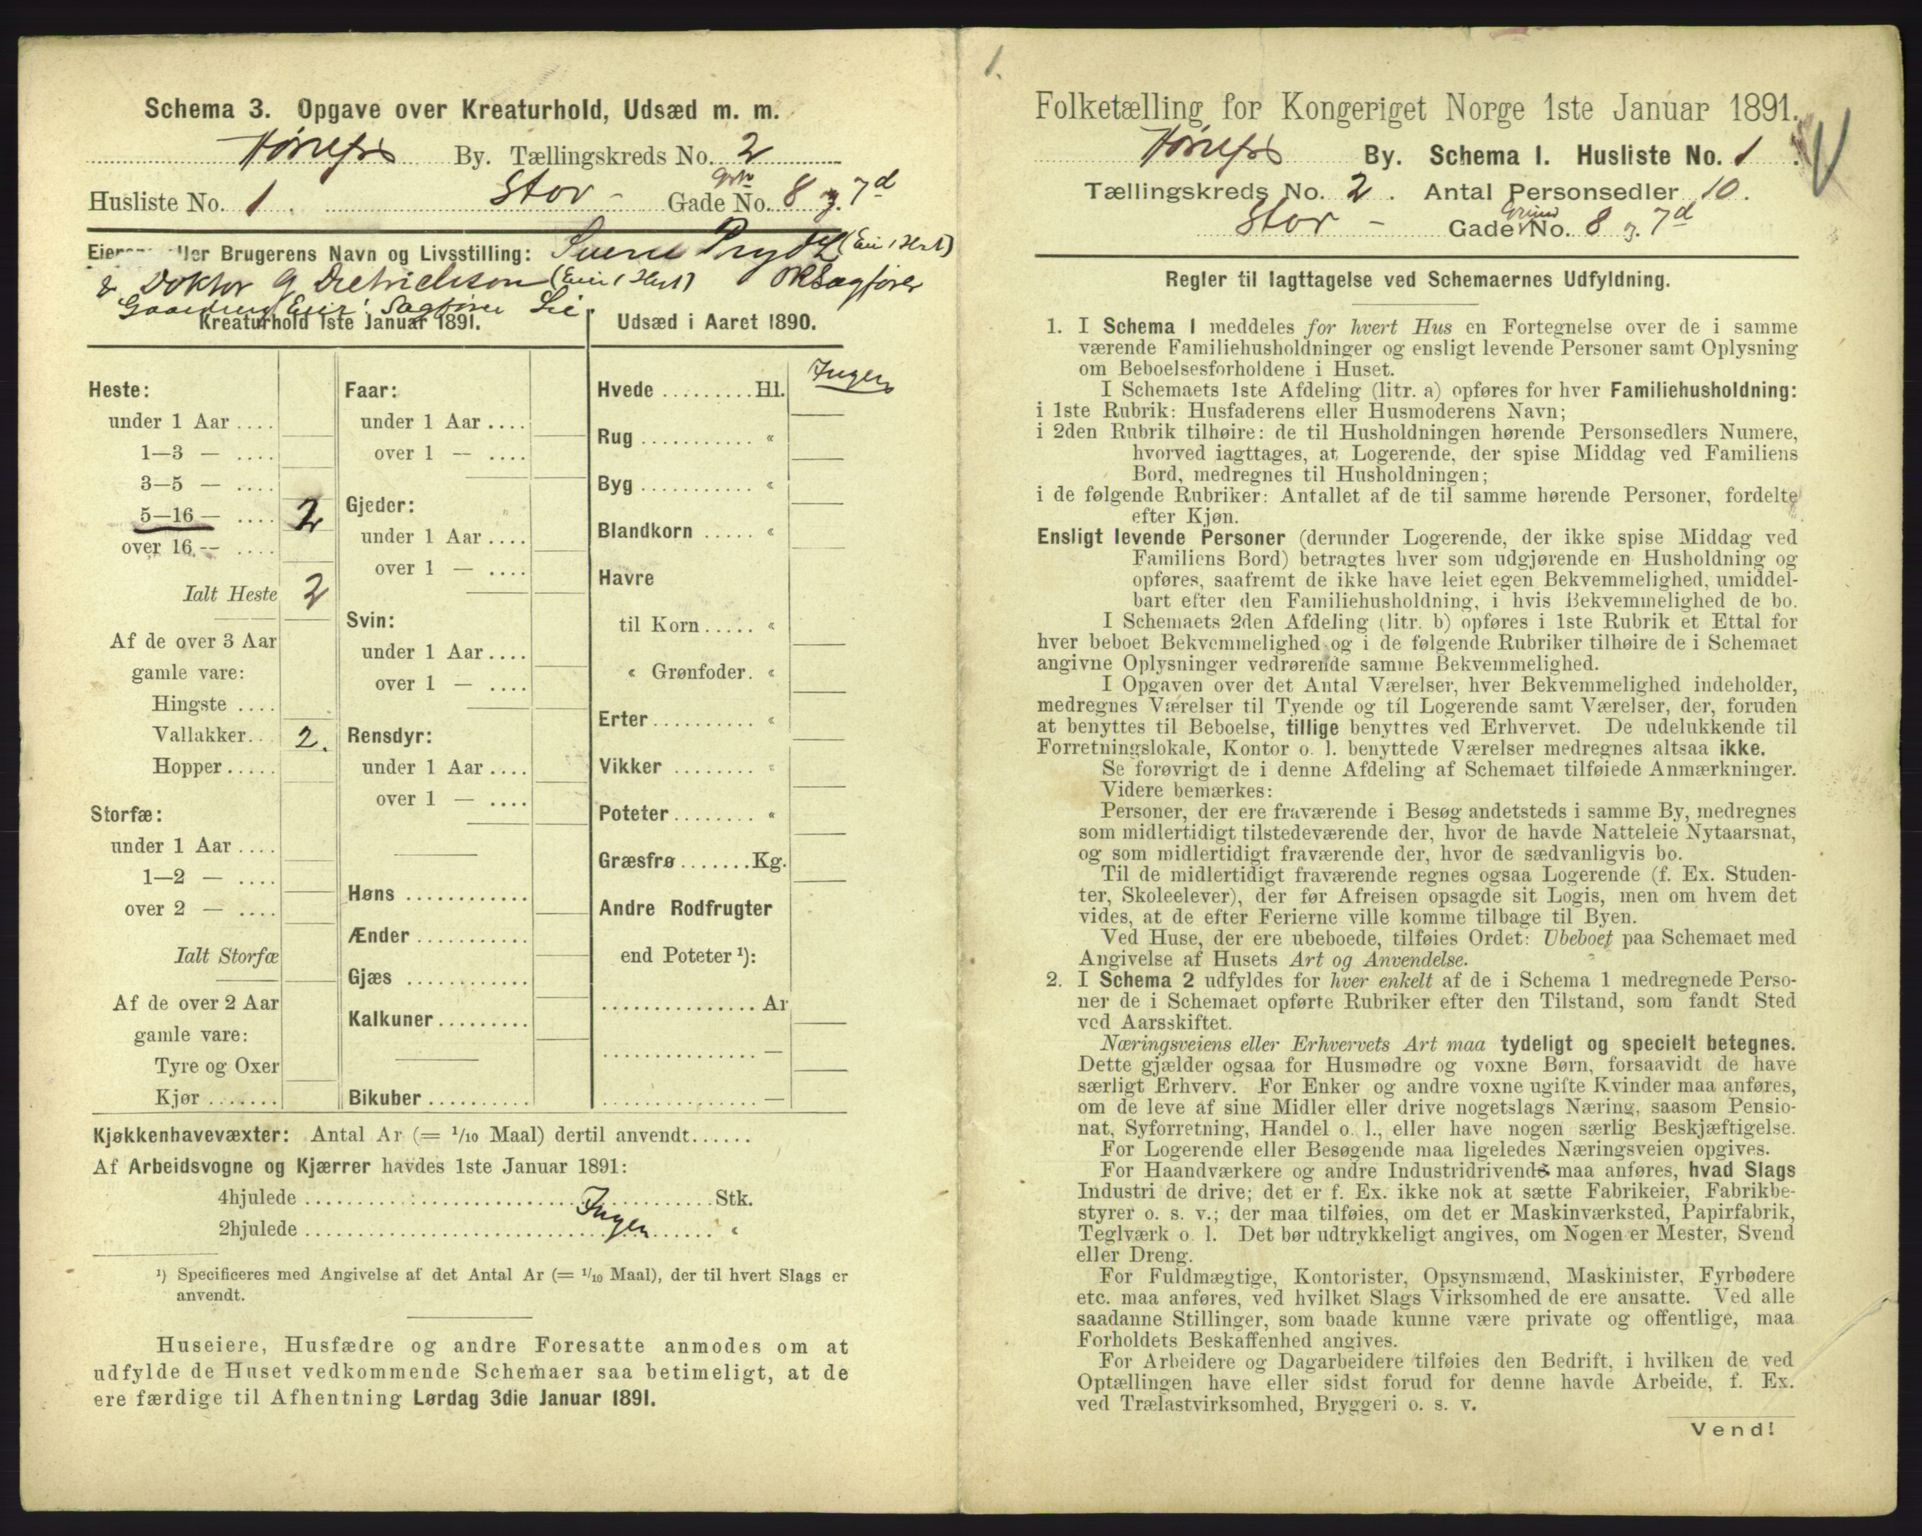 Schema 3. Opgave over Kreaturhold, Udsæd m. m.
Hønefos By. Tællingskreds No. 2
Husliste No. 1. Stor - Gade No. 8 og 7d
Eierens eller Brugerens Navn og Livsstilling: Sverre (Eier 1 Hest)
& Doktor G Dietrichson (Eier 1 Hest) ORSagfører
Gaardens Eier Sagfører Lie.
Kreaturhold 1ste Januar 1891.
Heste:
under 1 Aar ....
1—3 — ....
3—5 — ....
5—16 — .... 2
over 16 — ....
Ialt Heste 2
Af de over 3 Aar
gamle vare:
Hingste ....
Vallakker.. 2.
Hopper.....
Storfæ:
under 1 Aar ....
1—2 — ....
over 2 — ....
Ialt Storfæ
Af de over 2 Aar
gamle vare:
Tyre og Oxer
Kjør .......
Faar:
under 1 Aar ....
over 1 — ....
Gjeder:
under 1 Aar ....
over 1 — ....
Svin:
under 1 Aar ....
over 1 — ....
Rensdyr:
under 1 Aar ....
over 1 — ....
Høns ............
Ænder ...........
Gjæs ............
Kalkuner.........
Bikuber ..........
Udsæd i Aaret 1890.
Hvede .........Hl. Ingen
Rug ........... "
Byg ........... "
Blandkorn ..... "
Havre
til Korn..... "
" Grønfoder. "
Erter.......... "
Vikker ........ "
Poteter........ "
Græsfrø .......Kg.
Andre Rodfrugter
end Poteter ¹):
................ Ar
................ —
................ —
Kjøkkenhavevæxter: Antal Ar (= 1/10 Maal) dertil anvendt......
Af Arbeidsvogne og Kjærrer havdes 1ste Januar 1891:
4hjulede .......................................Stk.
2hjulede ............ Ingen ............ "
¹) Specificeres med Angivelse af det Antal Ar (= 1/10 Maal), der til hvert Slags er
anvendt.
Huseiere, Husfædre og andre Foresatte anmodes om at
udfylde de Huset vedkommende Schemaer saa betimeligt, at de
ere færdige til Afhentning Lørdag 3die Januar 1891.
1.
Folketælling for Kongeriget Norge 1ste Januar 1891.
Hønefos By. Schema I. Husliste No. 1.
Tællingskreds No. 2. Antal Personsedler 10.
Stor - Gade Grund No. 8 og 7d
Regler til Iagttagelse ved Schemaernes Udfyldning.
1. I Schema I meddeles for hvert Hus en Fortegnelse over de i samme
værende Familiehusholdninger og ensligt levende Personer samt Oplysning
om Beboelsesforholdene i Huset.
I Schemaets 1ste Afdeling (litr. a) opføres for hver Familiehusholdning:
i 1ste Rubrik: Husfaderens eller Husmoderens Navn;
i 2den Rubrik tilhøire: de til Husholdningen hørende Personsedlers Numere,
hvorved iagttages, at Logerende, der spise Middag ved Familiens
Bord, medregnes til Husholdningen;
i de følgende Rubriker: Antallet af de til samme hørende Personer, fordelte
efter Kjøn.
Ensligt levende Personer (derunder Logerende, der ikke spise Middag ved
Familiens Bord) betragtes hver som udgjørende en Husholdning og
opføres, saafremt de ikke have leiet egen Bekvemmelighed, umiddel-
bart efter den Familiehusholdning, i hvis Bekvemmelighed de bo.
I Schemaets 2den Afdeling (litr. b) opføres i 1ste Rubrik et Ettal for
hver beboet Bekvemmelighed og i de følgende Rubriker tilhøire de i Schemaet
angivne Oplysninger vedrørende samme Bekvemmelighed.
I Opgaven over det Antal Værelser, hver Bekvemmelighed indeholder,
medregnes Værelser til Tyende og til Logerende samt Værelser, der, foruden
at benyttes til Beboelse, tillige benyttes ved Erhvervet. De udelukkende til
Forretningslokale, Kontor o. l. benyttede Værelser medregnes altsaa ikke.
Se forøvrigt de i denne Afdeling af Schemaet tilføiede Anmærkninger.
Videre bemærkes:
Personer, der ere fraværende i Besøg andetsteds i samme By, medregnes
som midlertidigt tilstedeværende der, hvor de havde Natteleie Nytaarsnat,
og som midlertidigt fraværende der, hvor de sædvanligvis bo.
Til de midlertidigt fraværende regnes ogsaa Logerende (f. Ex. Studen-
ter, Skoleelever), der før Afreisen opsagde sit Logis, men om hvem det
vides, at de efter Ferierne ville komme tilbage til Byen.
Ved Huse, der ere ubeboede, tilføies Ordet: Ubeboet paa Schemaet med
Angivelse af Husets Art og Anvendelse.
2. I Schema 2 udfyldes for hver enkelt af de i Schema 1 medregnede Perso-
ner de i Schemaet opførte Rubriker efter den Tilstand, som fandt Sted
ved Aarsskiftet.
Næringsveiens eller Erhvervets Art maa tydeligt og specielt betegnes.
Dette gjælder ogsaa for Husmødre og voxne Børn, forsaavidt de have
særligt Erhverv. For Enker og andre voxne ugifte Kvinder maa anføres,
om de leve af sine Midler eller drive nogetslags Næring, saasom Pensio-
nat, Syforretning, Handel o. l., eller have nogen særlig Beskjæftigelse.
For Logerende eller Besøgende maa ligeledes Næringsveien opgives.
For Haandværkere og andre Industridrivende maa anføres, hvad Slags
Industri de drive; det er f. Ex. ikke nok at sætte Fabrikeier, Fabrikbe-
styrer o. s. v.; der maa tilføies, om det er Maskinværksted, Papirfabrik,
Teglværk o. l. Det bør udtrykkeligt angives, om Nogen er Mester, Svend
eller Dreng.
For Fuldmægtige, Kontorister, Opsynsmænd, Maskinister, Fyrbødere
etc. maa anføres, ved hvilket Slags Virksomhed de ere ansatte. Ved alle
saadanne Stillinger, som baade kunne være private og offentlige, maa
Forholdets Beskaffenhed angives.
For Arbeidere og Dagarbeidere tilføies den Bedrift, i hvilken de ved
Optællingen have eller sidst forud for denne havde Arbeide, f. Ex.
ved Trælastvirksomhed, Bryggeri o. s. v.
Vend!